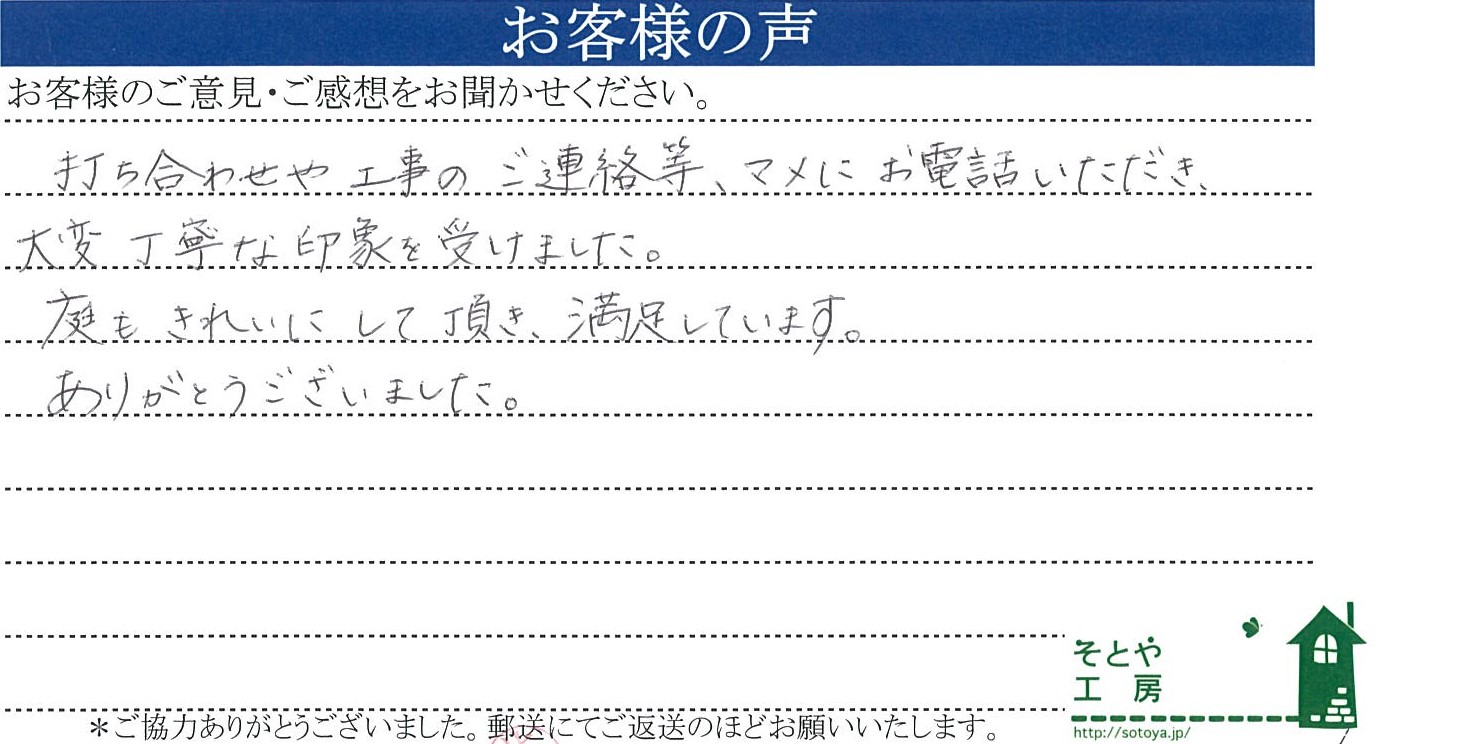 お客様の声
お客様のご意見・ご感想をお聞かせください。
打ち合わせや工事のご連絡等、マメにお電話いただき、
大変丁寧な印象を受けました。
庭もきれいにして頂き、満足しています。
ありがとうございました。
そとや
工房
＊ご協力ありがとうございました。郵送にてご返送のほどお願いいたします。
http://sotoya.jp/